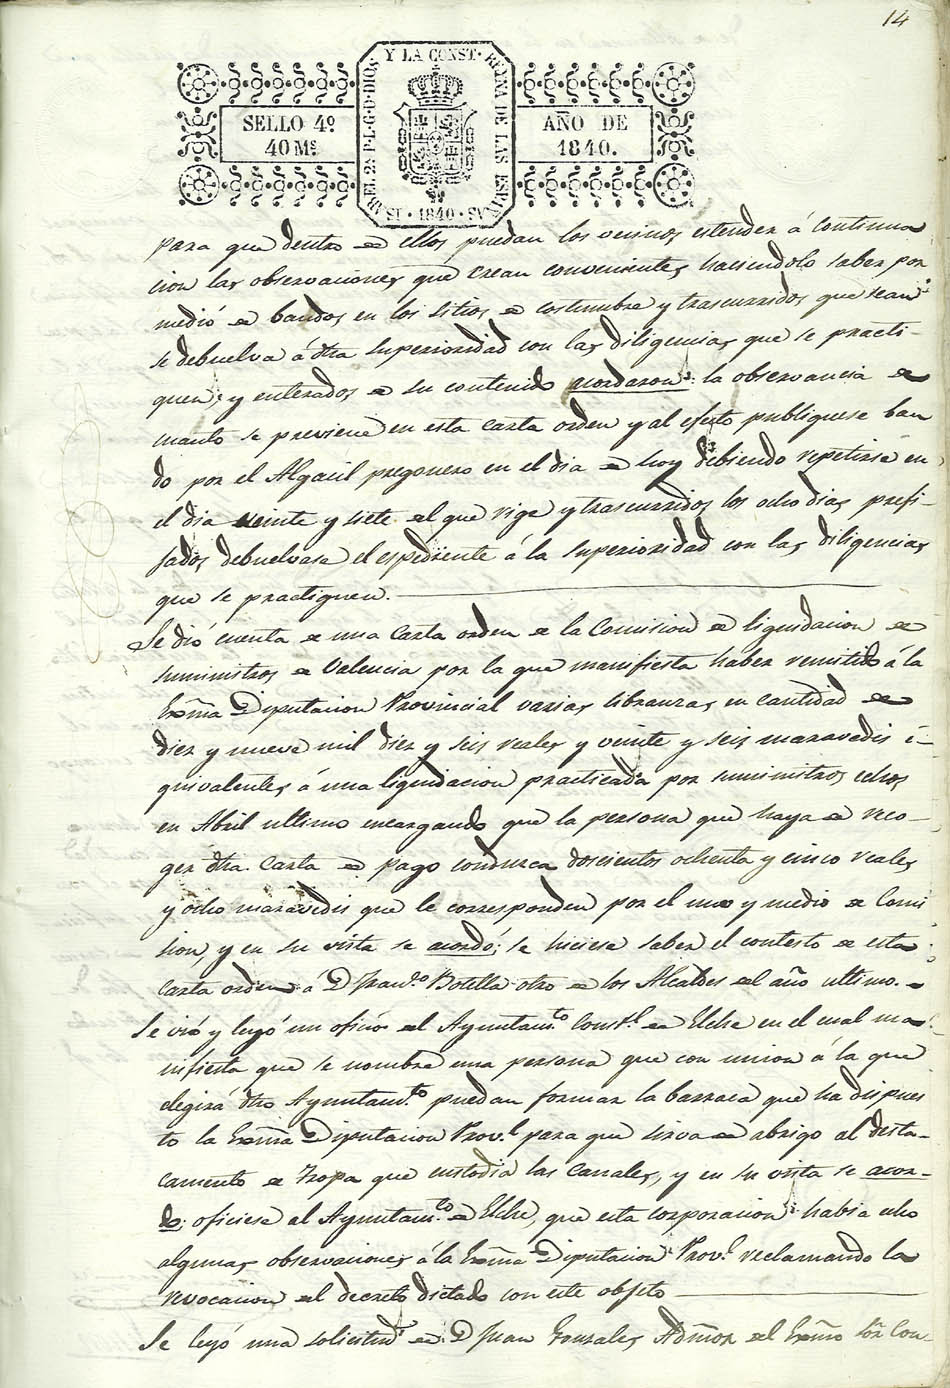 14
Y LA CONST. REYNA DE LAS ESPAÑAS
ISABEL 2ª P. L. G. D. DIOS
1840
SELLO 4º
40 Ms
AÑO DE
1840.
para que dentro de ellos puedan los vecinos estender á continua
cion las observaciones que crean convenientes, haciendolo saber por
medió de bandos en los sitios de costumbre y trascurridos que sean
se debuelva á dha superioridad con las diligencias que se practi-
quen; y enterados de su contenido acordaron: la observancia de
cuanto se previene en esta carta orden y al efecto publiquese ban
do por el Alguacil pregonero en el dia de hoy debiendo repetirse en
el dia veinte y siete del que rige y trascurridos los ocho dias prefi-
jados debuelvase el espediente á la superioridad con las diligencias
que se practiquen.
Se dió cuenta de una Carta orden de la Comision de liquidacion de
suministros de Valencia por la que manifiesta haber remitido á la
Exma Diputacion Provincial varias libranzas en cantidad de
diez y nueve mil diez y seis reales y veinte y seis maravedis e-
quivalentes á una liquidacion practicada por suministros echos
en Abril ultimo encargando que la persona que haya de reco-
ger dha. Carta de pago conduzca doscientos ochenta y cinco reales
y ocho maravedis que le corresponden por el uno y medio de Comi
sion, y en su vista se acordó: se hiciese saber el contesto de esta
Carta orden á D Franco Botella otro de los Alcaldes del año ultimo.
Se vió y leyó un oficio del Ayuntamto Constl de Elche en el cual ma-
nifiesta que se nombre una persona que con union á la que
elegirá dho Ayuntamto puedan formar la barraca que ha dispues
to la Exma Diputacion Provl para que sirva de abrigo al desta-
camento de Tropa que custodia las Canales, y en su vista se acor-
dó: oficiese al Ayuntamto de Elche, que esta corporacion habia echo
algunas observaciones á la Exma Diputacion Provl reclamando la
revocacion del decreto dictado con este objeto
Se leyó una solicitud de D Juan Gonzales Admor del Exmo Sor Con-